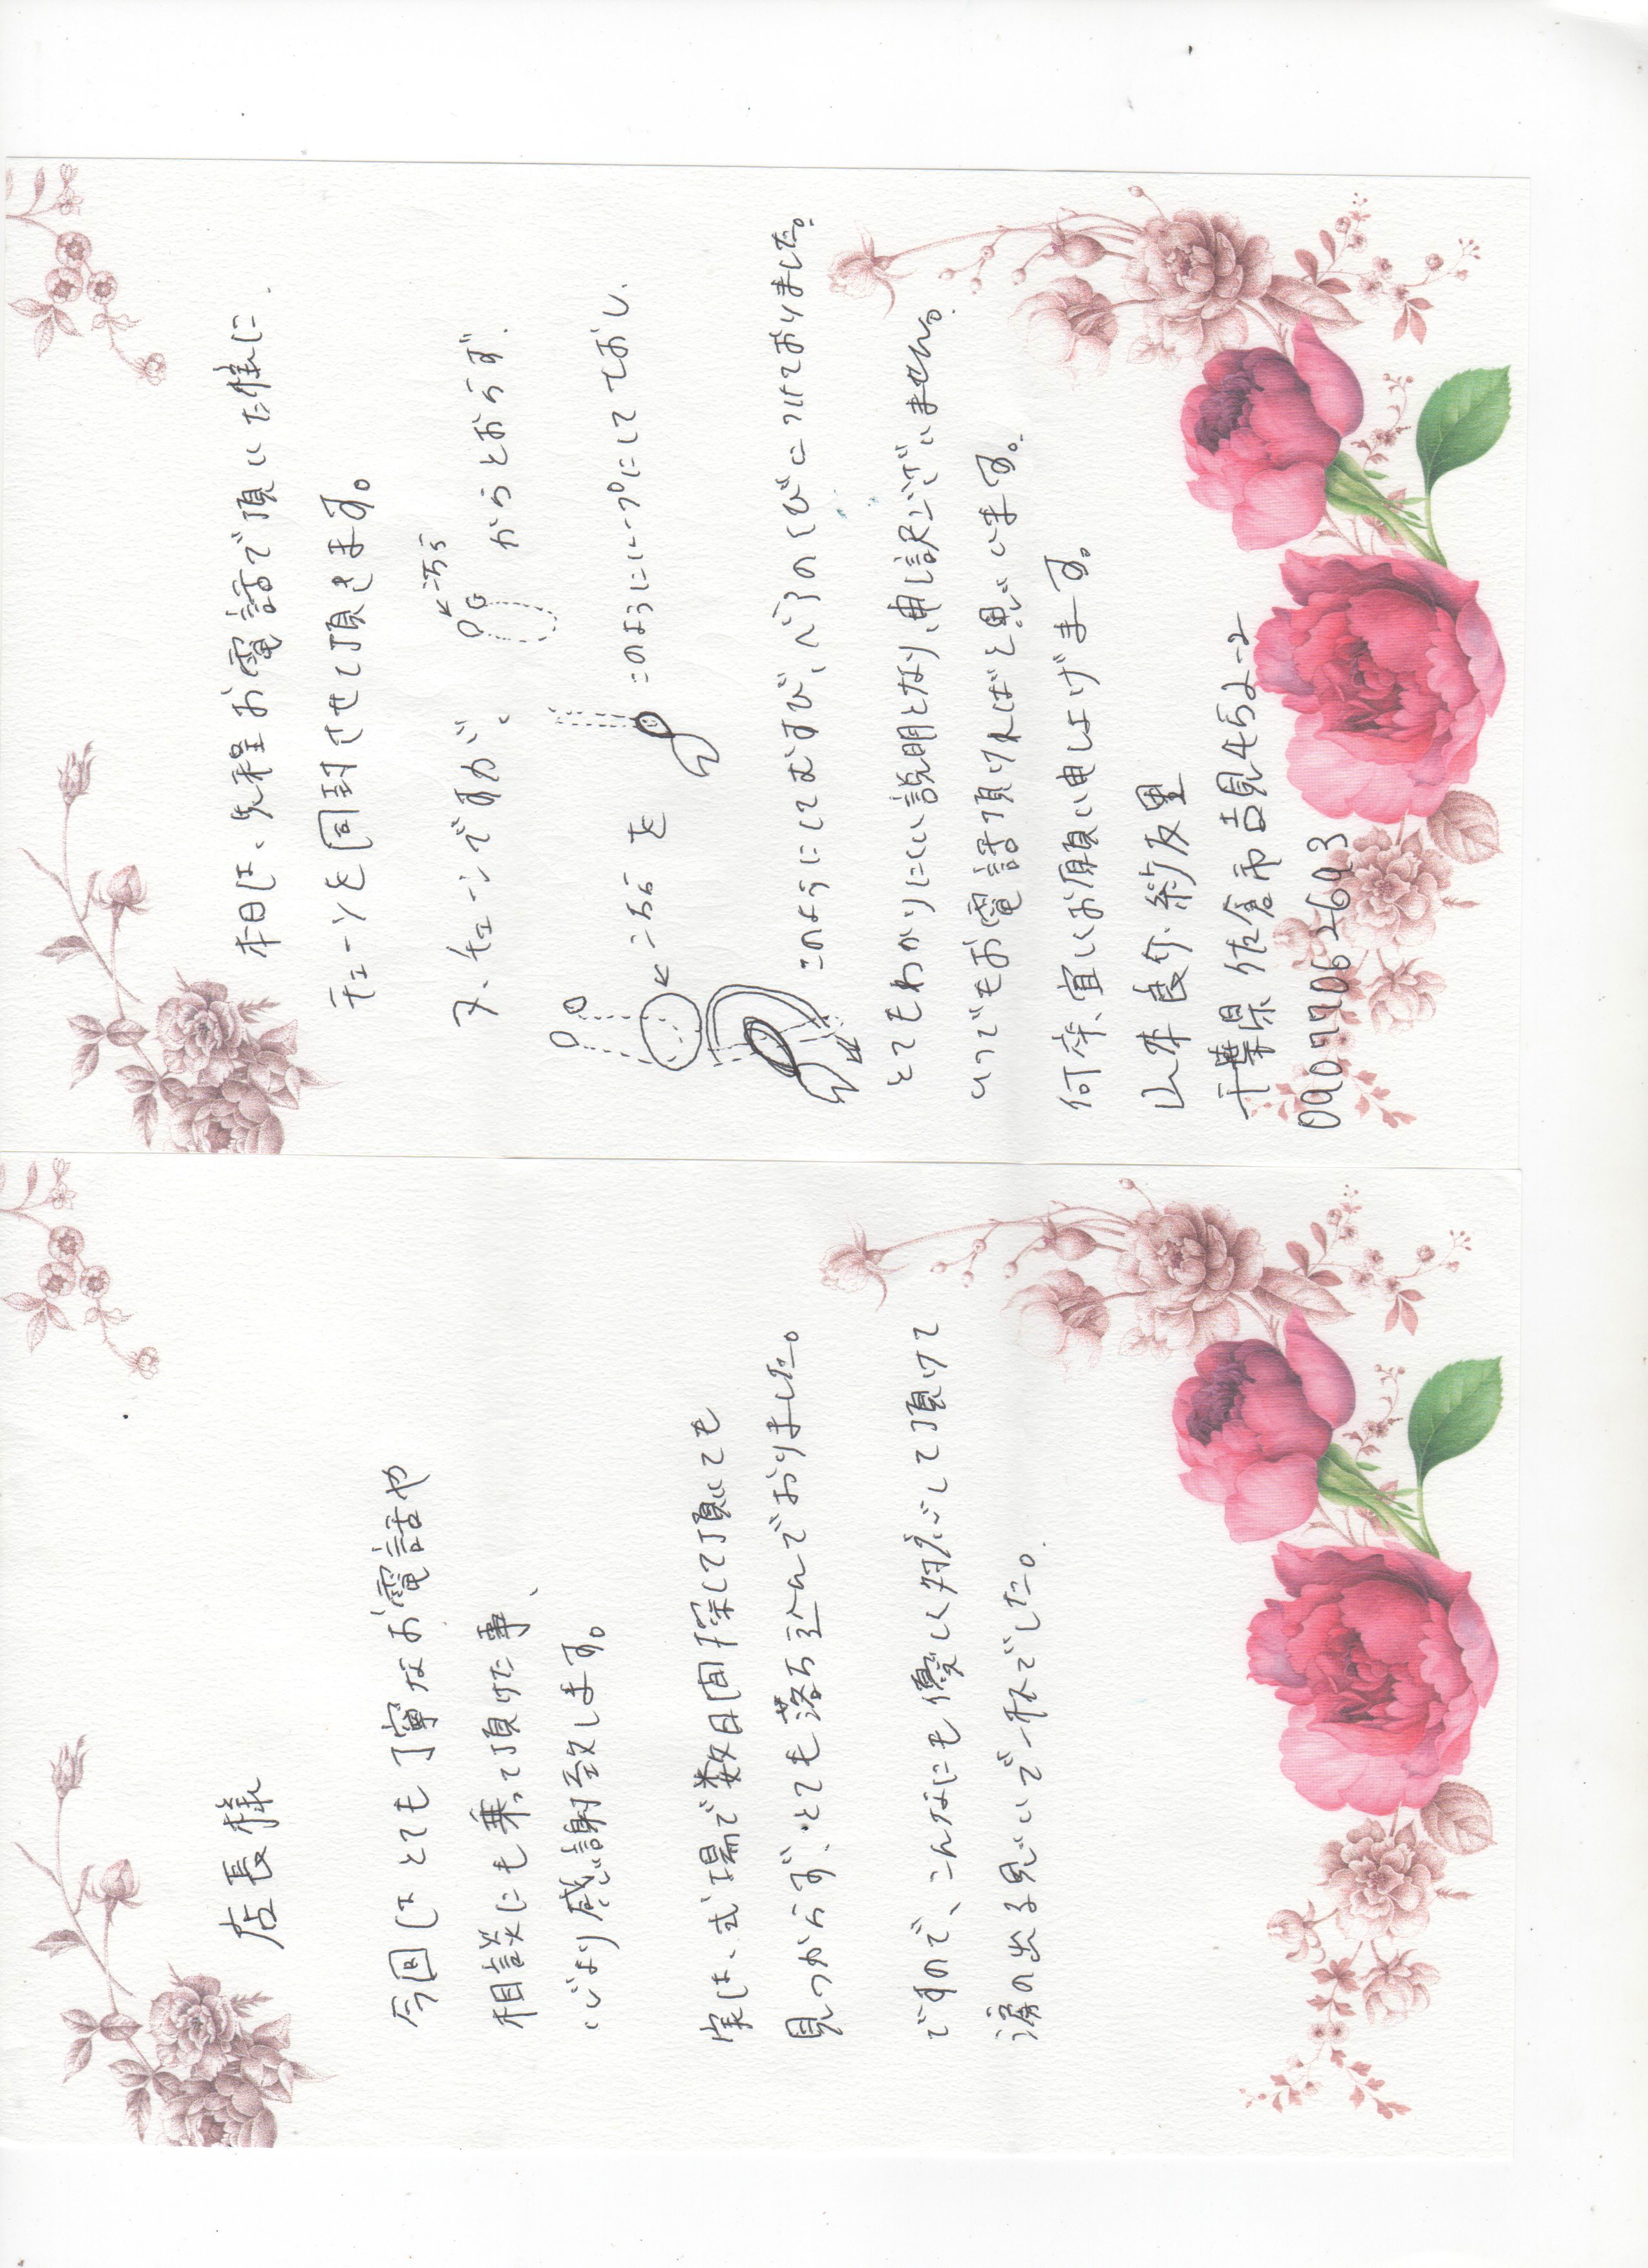 店長様
今回はとても丁寧なお電話や
相談にも乗って頂けた事、
心より感謝致します。
実は、式場で数日間探して頂いても
見つからず、とても落ち込んでおりました。
ですので、こんなにも優しく対応して頂けて
涙の出る思いで一杯でした。
本日は、先程お電話で頂いた様に
チェーンを同封させて頂きます。
又、チェーンですが、
←こちら
からとおらず
←こちら
を
このようにループにしてとおし、
このようにしてむすび、ベラのくびにつけておりました。
とてもわかりにくい説明となり、申し訳ございません。
いつでもお電話頂ければと思います。
何卒、宜しくお願い申し上げます。
山本 良介、紗友里
千葉県 佐倉市 吉見452-2
09077062693